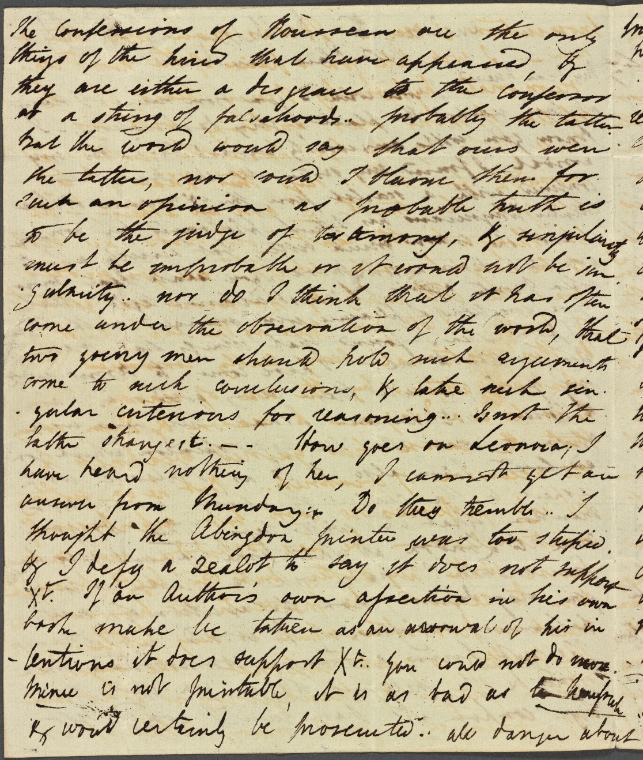 The Confessions of Rousseau are the only
things of the kind that have appeared, &
they are either a disgrace to the confessor
or a string of falsehoods.. probably the latter
But the world would say that ours were
the latter, nor would I blame them for
such an opinion as probable truth is
to be the judge of testimony, & singularity
must be improbable or it would not be sin
gularity.. nor do I think that it has often
come under the observation of the world, that
two young men should hold such arguments
come to such conclusions, & take such sin-
-gular criterions for reasoning.. Is not the
latter strangest. — - How goes on Leonora, I
have heard nothing of her, I cannot get an
answer from Munday.. Do they tremble.. I
thought the Abingdon printer was too stupid.
& I defy a zealot to say it does not support
Xt. If an Author's own assertion in his own
book make be taken as an avowal of his in
-tentions it does support Xt. you could not do more
Mine is not printable, it is as bad as
& would certainly be prosecuted.. all danger about